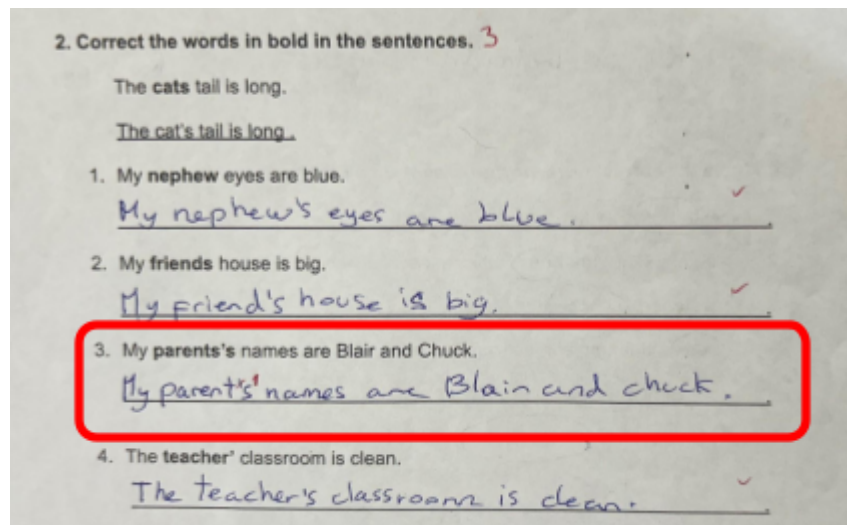 2. Correct the words in bold in the sentences. 3
The cats tail is long.
The cat's tail is long.
1. My nephew eyes are blue.
My nephew's eyes are blue.
2. My friends house is big.
My friend's house is big.
3. My parents's names are Blair and Chuck.
My parent's' names are Blain and chuck.
4. The teacher' classroom is clean.
The teacher's classroom is clean.